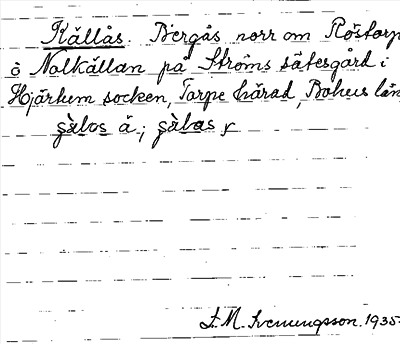 Källås. Bergås norr om Röstorp
o Nolkällan på Ströms sätesgård i
Hjärtum socken, Torpe härad, Bohus län
s̬àlos å, s̬àlas
F.M. Svenungsson. 1935.